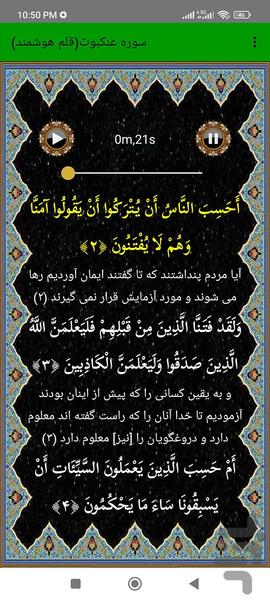 10:50 PM
سوره عنکبوت(قلم هوشمند)
0m,21s
أَحَسِبَ النَّاسُ أَنْ يُتْرَكُوا أَنْ يَقُولُوا آمَنَّا
وَهُمْ لَا يُفْتَنُونَ ﴿۲﴾
آیا مردم پنداشتند که تا گفتند ایمان آوردیم رها
می شوند و مورد آزمایش قرار نمی گیرند (۲)
وَلَقَدْ فَتَنَّا الَّذِينَ مِنْ قَبْلِهِمْ فَلَيَعْلَمَنَّ اللَّهُ
الَّذِينَ صَدَقُوا وَلَيَعْلَمَنَّ الْكَاذِبِينَ ﴿۳﴾
و به یقین کسانی را که پیش از اینان بودند
آزمودیم تا خدا آنان را که راست گفته اند معلوم
دارد و دروغگویان را [نیز] معلوم دارد (۳)
أَمْ حَسِبَ الَّذِينَ يَعْمَلُونَ السَّيِّئَاتِ أَنْ
يَسْبِقُونَا سَاءَ مَا يَحْكُمُونَ ﴿۴﴾